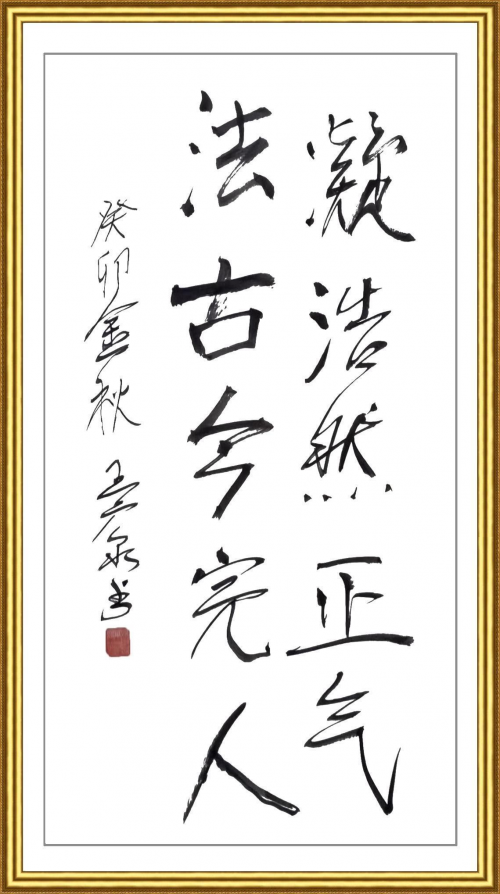 凝浩然正气
法古今完人
癸卯金秋 王亮书